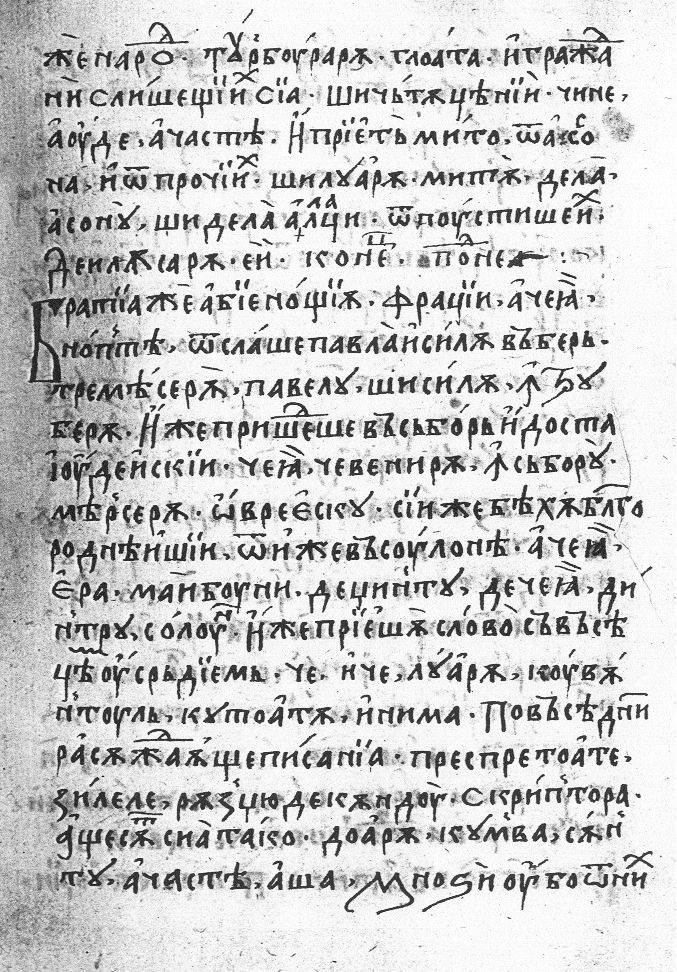 же наро҃ · тꙋрбоурарѫ · глоата · и гражⷣа
ни слишещїиⷯ сїа · шичьтѫцѣнїи · чине,
аоуде, ачастѣ · И прїетъ мито, ѿ асо
на, и ѿ прочїиⷯ · шилуарѫ · митѫ, дела,
асонꙋ, шидела алⷧаци · ѿпоустише иⷯ,
деилѫсарѫ · еи · конеⷰ · поⷩе :·
Братїа же абїе нощїѫ · фрацїи, ачеꙗ,
нопте, ѿслаше павла и силѫ въ берь ·
тремѣсерѫ, павелу, шисилѫ, ꙟтру
берѫ · Иже пришеⷣше въ сьборь и доста
іоудеискїи · чеꙗ, чевенирѫ, ꙟсьборꙋ ·
мѣрсерѫ · ѡврееску · сїиже бѣхѫ блго
роднѣишїи, ѿ иже въ солунѣ · ачеꙗ,
ера · маибоуни · децинту, дечеꙗ, ди
нтру, солоуⷩ · Иже прїешѫ слово съ въсѣ
цѣ оусрьдїемь · че, иче, луарѫ, коувѫ
нтоуль, кутоатѫ, инима · По въсѣ дни
расѫжⷣаѫще писанїа · преспретоате,
зилеле, рѫзцюдекѫндоу · Скриптора ·
аще сѫⷮ сиа тако · доарѫ · кумва, сѫн
ту, ачастѣ, аша, Мноѕи оубо ѿ ниⷯ